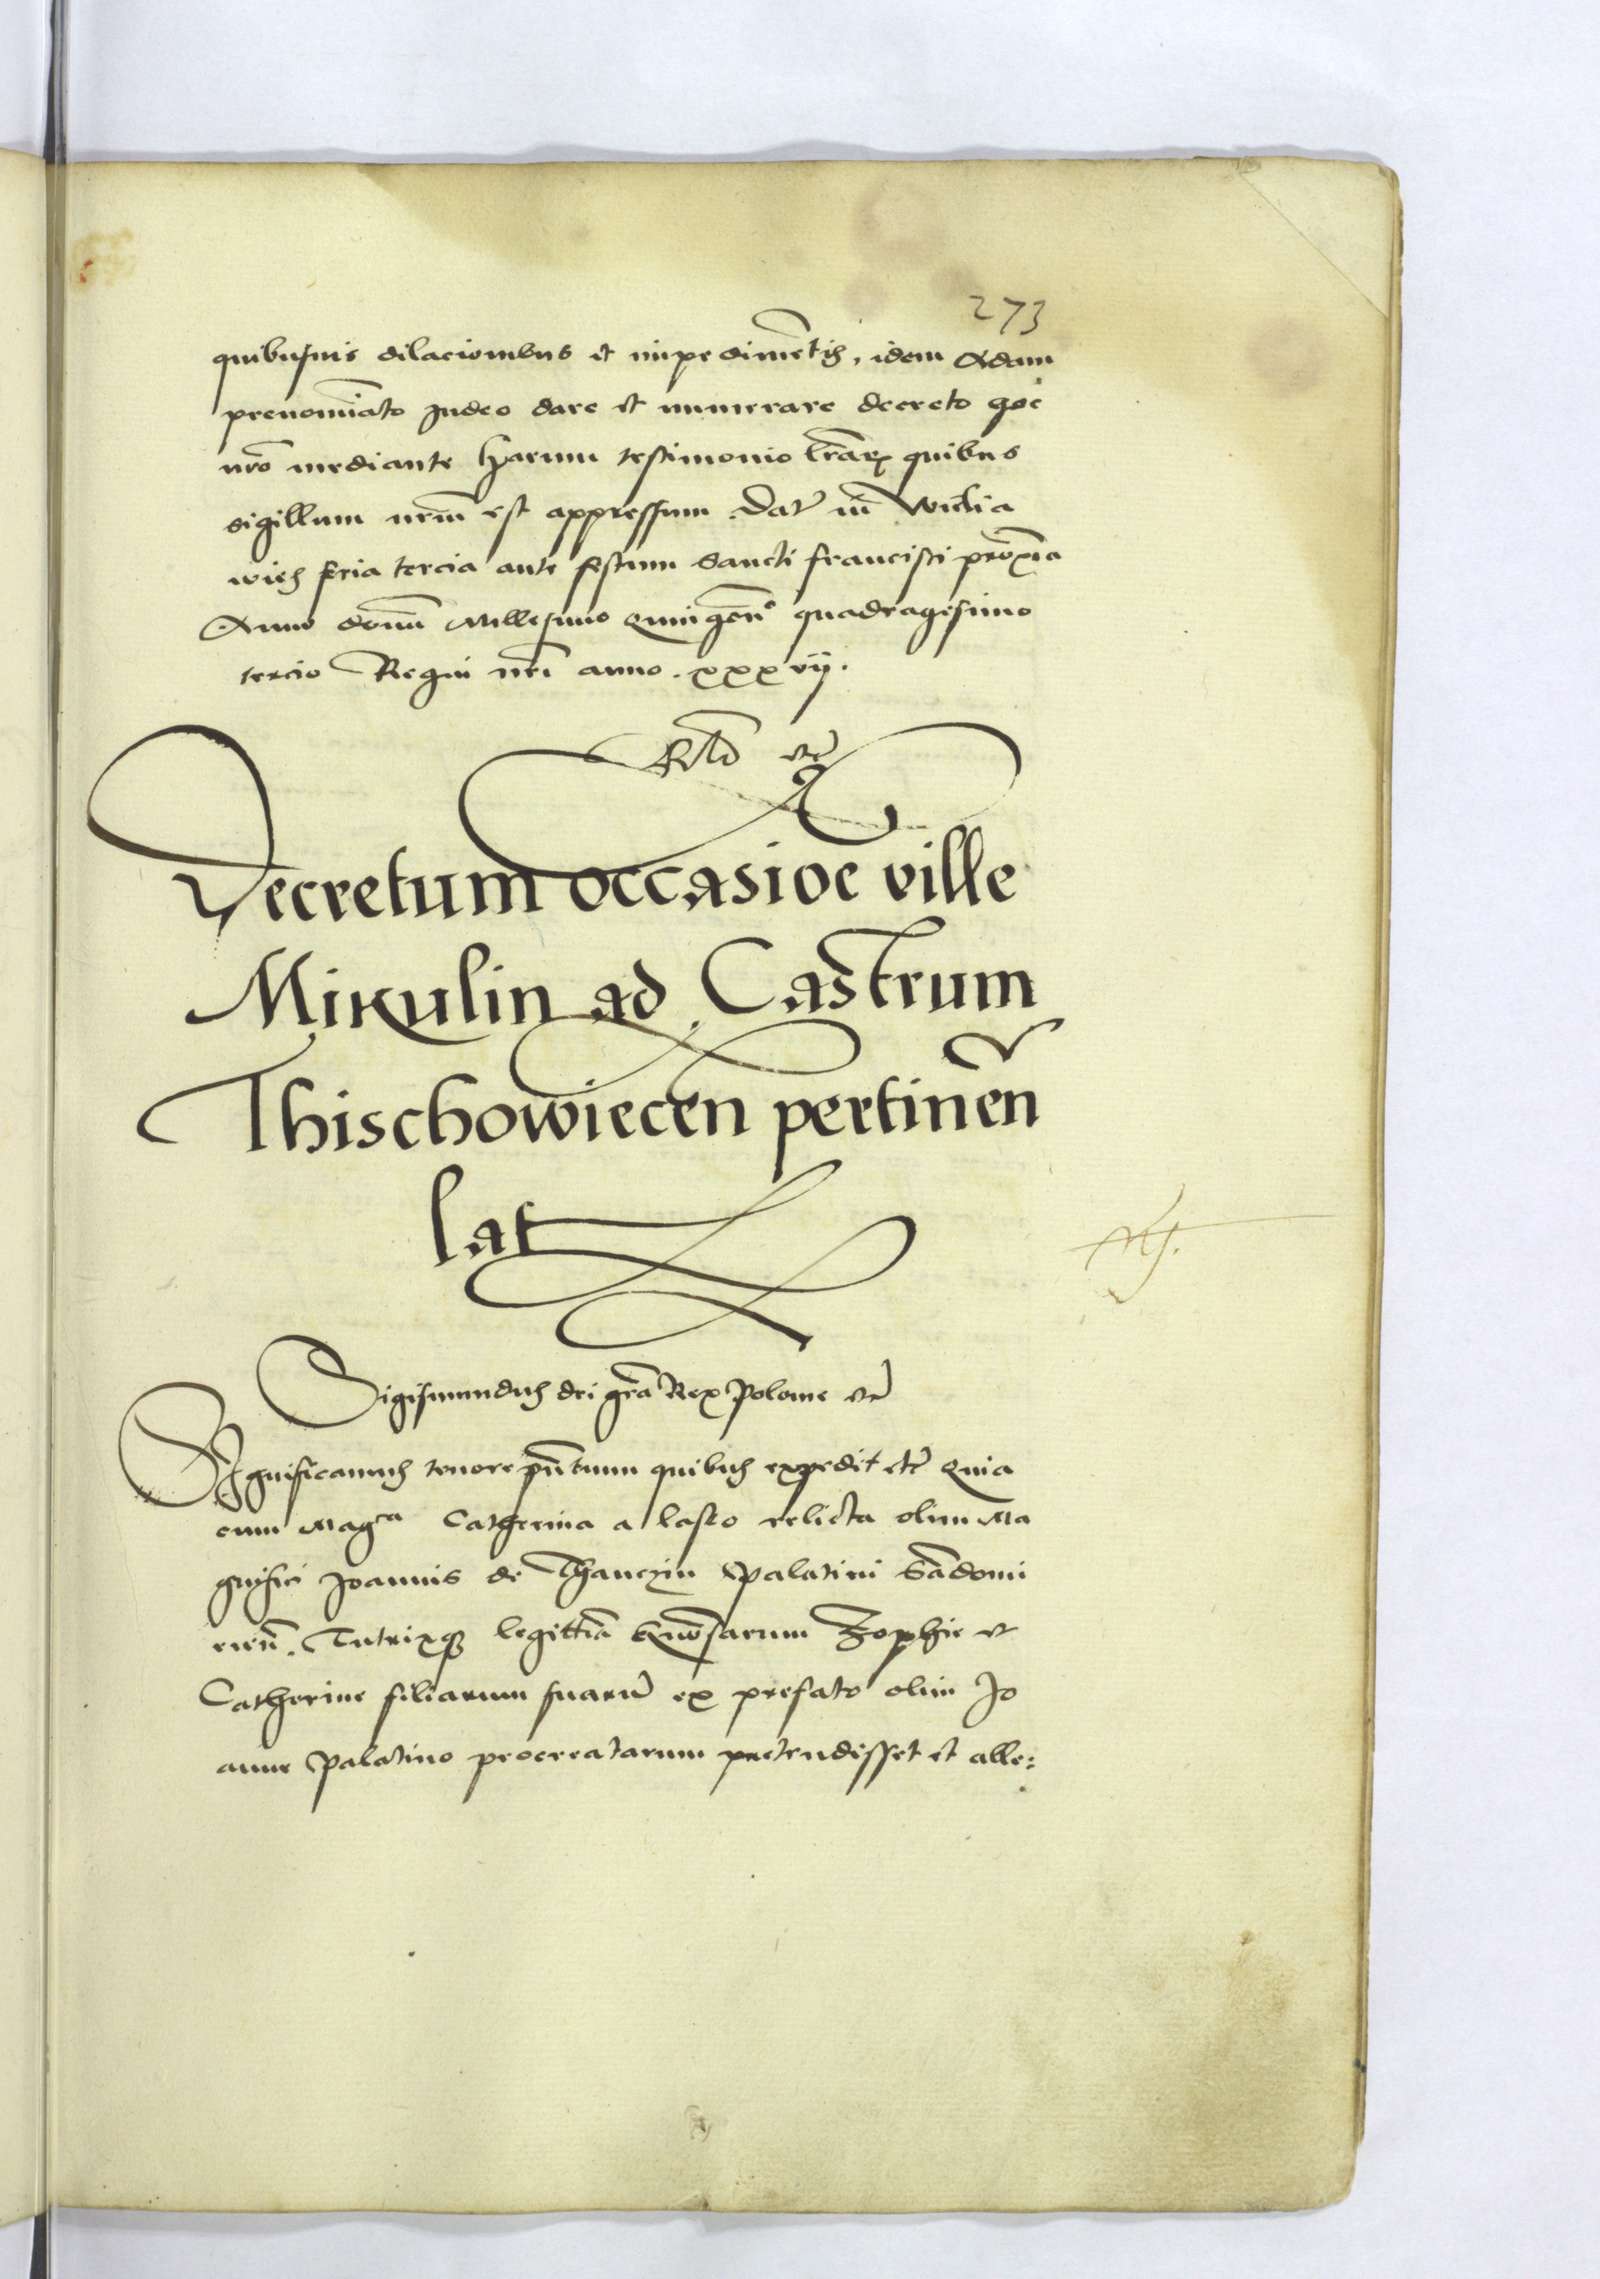 273
quibusuis dilacionibus et impedimētis, idem Adam
prenomīato Judeo dare et numerare decreto hoc
nr̄o mediante harum testimonio lr̄arꝝ quibus
sigillum nr̄m est appressum Dat̄ in̄ Vislia
wicz feria tercia ante festum Sancti Francisci proxīa
Anno domī Millesimo Quingen° quadragesimo
tercio Regni nr̄i anno. xxxvij.
Decretum occasioe ville
Mikulin ad Castrum
Thischowiecen pertinēn
lat
Sigismundus dei gr̄a Rex Polonie etc̄
Significamus tenore pn̄tium quibus expedit etc̄ Quia
cum Magca Catherina a Lasco relicta olim Ma
gnifici Joannis de Thanczin Palatini Sādomi
rien̄. Tutrixqꝫ legittīa Gn̄osarum Zophie et
Catherine filiarum suarū ex prefato olim Jo
anne Palatino procreatarum pretendisset et alle: